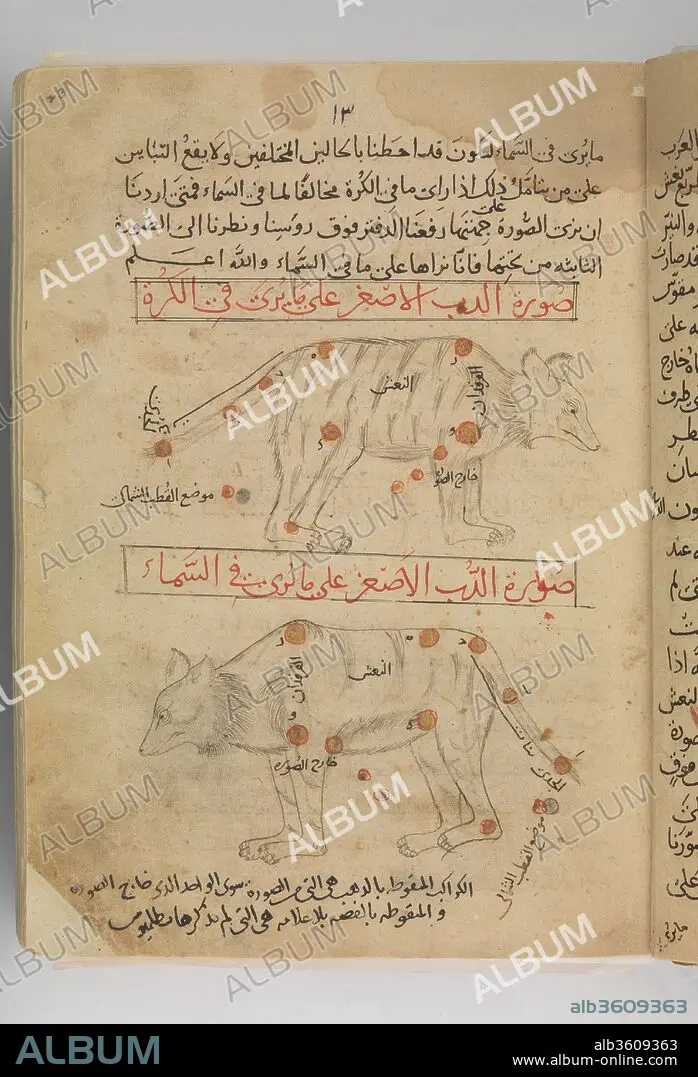 ١٣
ما يُرى في السَّماء لنكون قد احطنا بالحالين المختلفين ولا يقع التباين
على من يتامل ذلك اذا راى ما في الكرة مخالفًا لما في السماء فمتى اردنا
ان نرى الصُّورة على جهتها رفعنا الدفتر فوق رؤسنا ونظرنا الى الصُّورة
الثانية من تحتها فانّا نراها على ما في السَّماء والله اعلم
صُورة الدب الاصغر على ما يُرَى في الكُرة
النعش
الفرقدان
الجدي
خارج الصورة
موضع القطب الشمالى
صورة الدُّب الاَصغر على ما يُرى في السَّماء
الفرقدان
النعش
خارج الصُّورة
الجدى
موضع القطب الشمالى
الكواكب المنقوطة بالذهب هى التى من الصورة سوى الواحد الذى خارج الصورة
و المنقوطة بالفضة بلا علامة هى التى لم يذكرها بطلميوس
ALBUM
alb3609363
ALBUM
alb3609363
www.album-online.com